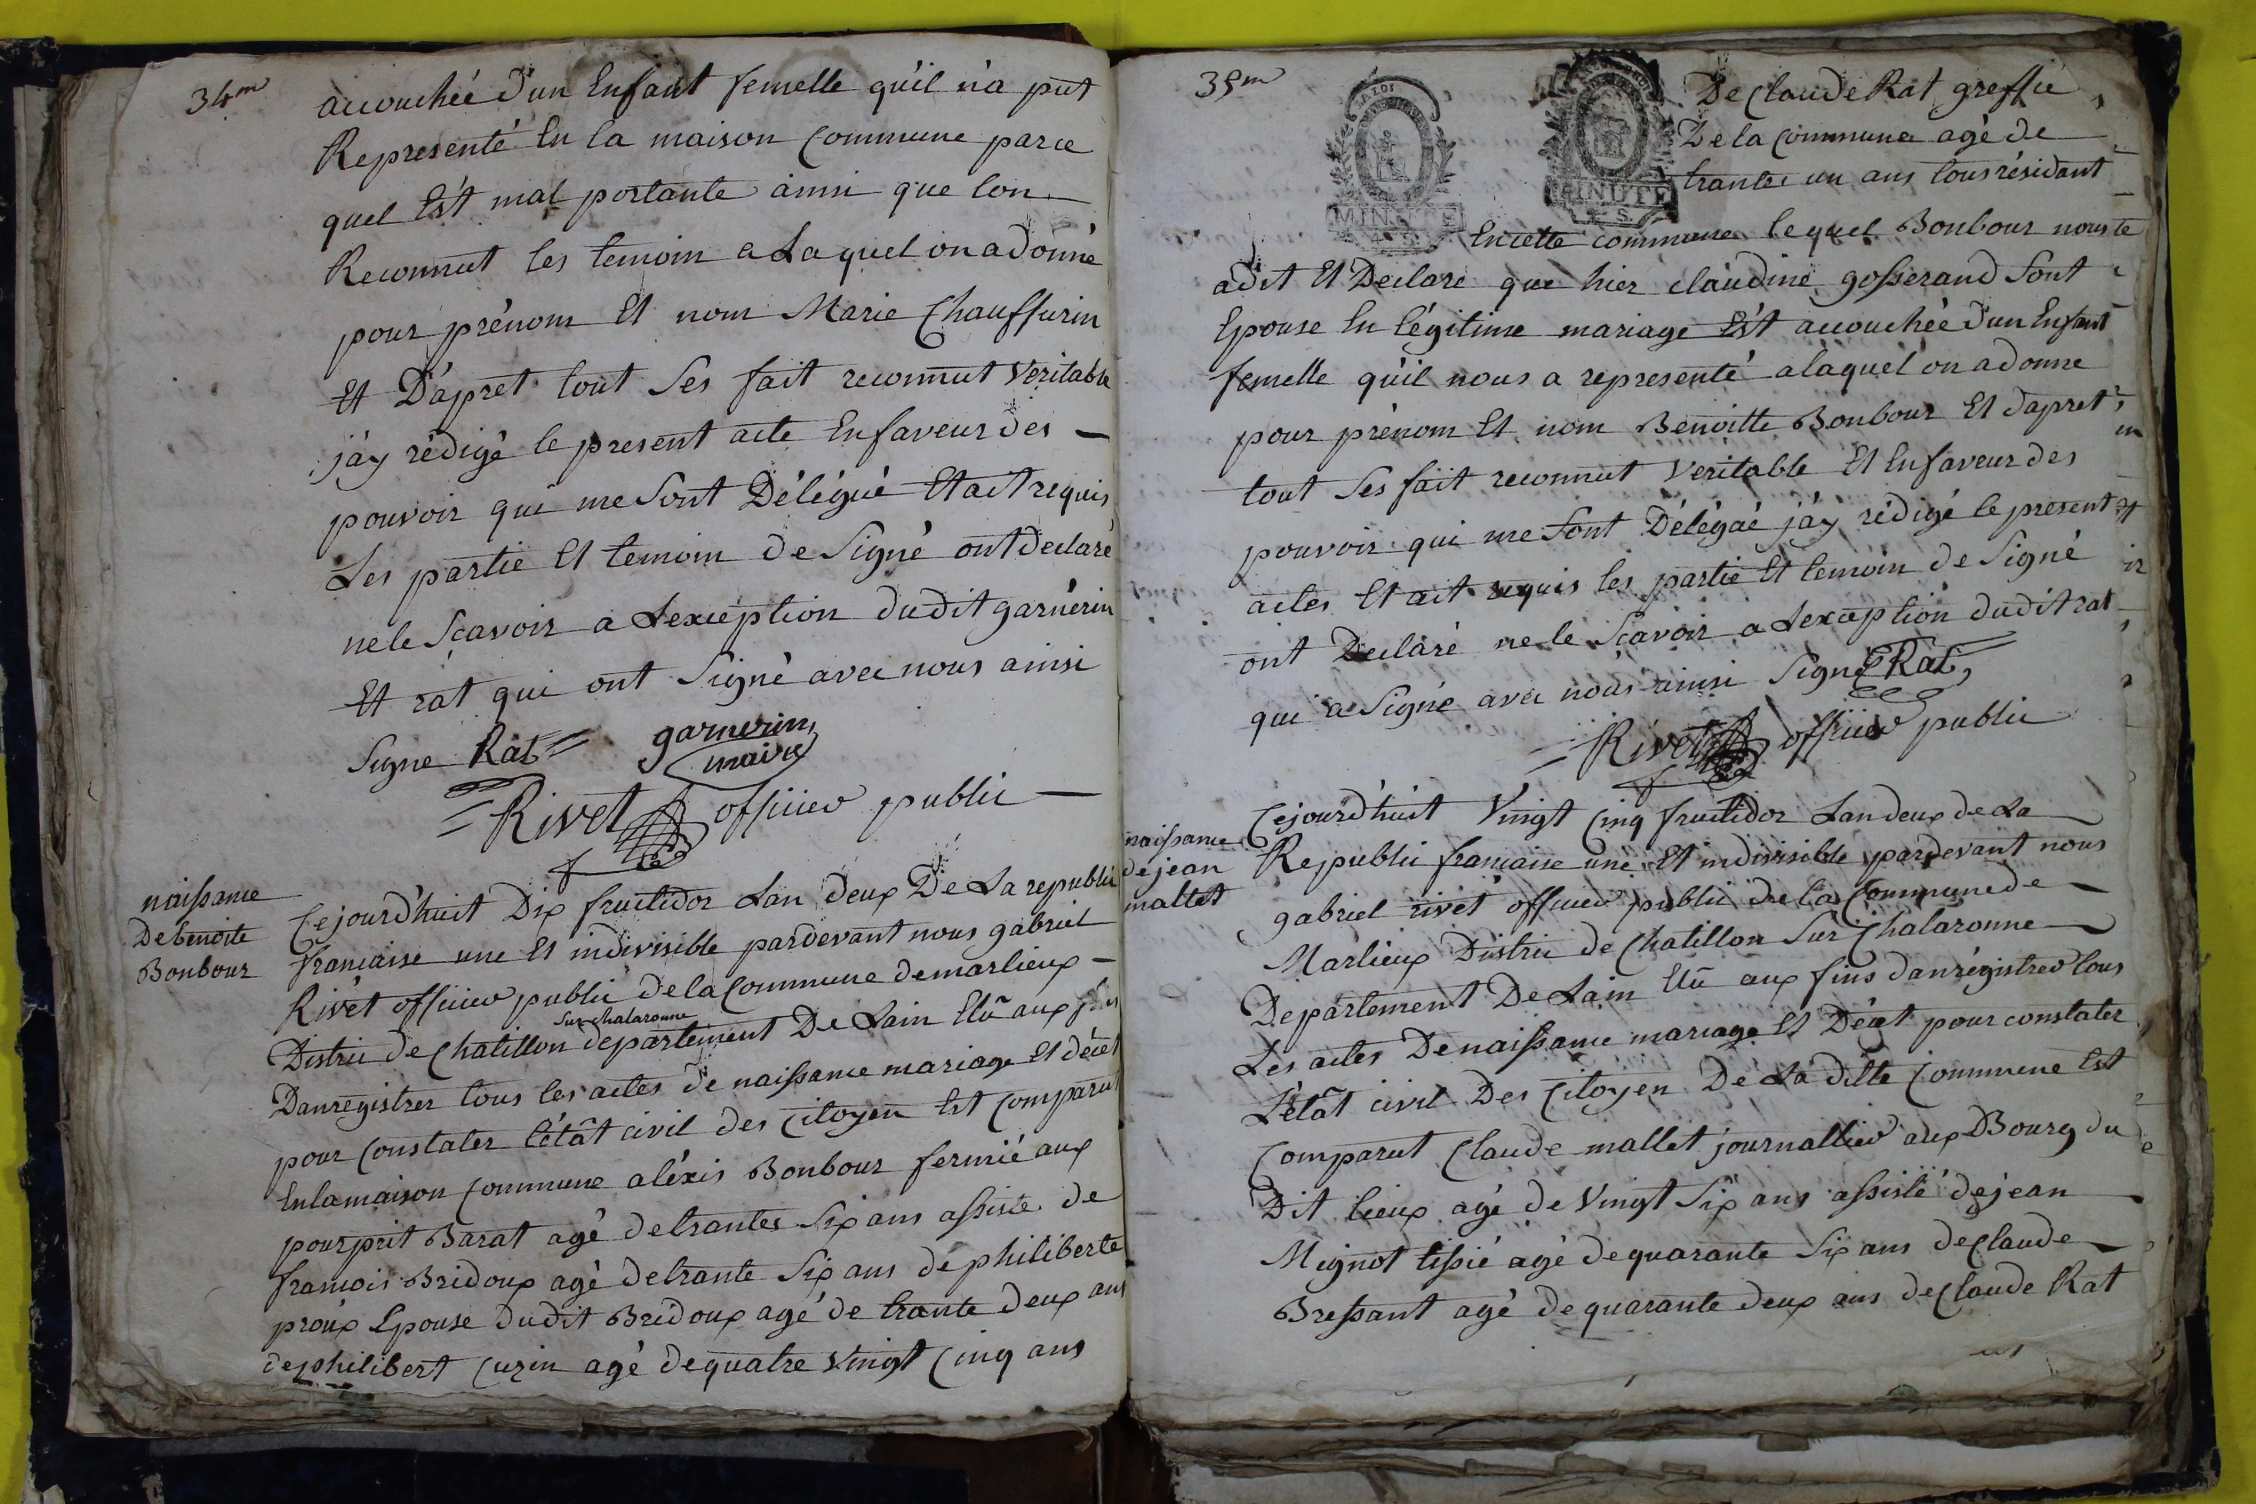 34m
accouchéé d'un Enfant femelle qu'il n'a put
Representé En la maison Commune parce
quel Est mal portante ainsi que lon
Reconnut les temoin a Laquel on a donné
pour prénom Et nom Marie Chauffurin
Et D'apret tout Ses fait reconnut Veritable
j'ay rédigé le present acte En faveur des
pouvoir qui me Sont Délégué Et ait requis
Les partie Et temoin de Signé ont declaré
ne le Sçavoir a Lexception dudit garnérin
Et rat qui ont Signé avec nous ainsi
Signe Rat garnerin
maire
Rivet officier public
naissance
De benoite
Bonbour
Cejourd'huit Dix fructidor Lan deux De La republic
francaise une Et indivisible pardevant nous gabriel
Rivet officier public de la Commune de marlieux
sur chalaronne
Distric de Chatillon departement De Lain Elû aux fins
Danregistrer tous les actes de naissance mariage Et décét
pour Constater l'étât civil des Citoyen Est Comparut
En la maison Commune aléxis Bonbour fermié aux
pourprit Barat agé de trantes Six ans assisté de
francois Bridoux agé de trante Six ans de philiberte
proux Epouse dudit Bridoux agé de trante deux ans
de philibert Curin agé de quatre Vingt Cinq ans
35m
De Claude Rat greffié
De la Commune agé de
trante un ans tous résidant
LA LOI
MINUTE
4. S.
MINUTE
S.
En cette commune lequel Bonbour nous
a dit Et Declaré que hier claudine gosserand Sont
Epouse En légitime mariage Est accouchéé d'un Enfant
femelle qu'il nous a representé a laquel on a donne
pour prénom Et nom Benoitte Bonbour Et dapret
tout Ses fait reconnut Veritable Et En faveur des
pouvoir qui me Sont Délégué j'ay rédigé le present
actes Et ait requis les partie Et temoin de Signé
ont Declaré ne le Scavoir a Lexception dudit rat
qui a Signé avec nous ainsi Signé Rat
Rivet officier public
naissance
de jean
mallet
Cejourd'huit Vingt Cinq fructidor Lan deux de La
Republic francaise une Et indivisible pardevant nous
gabriel rivet officier public de la Commune de
Marlieux Distric de Chatillon Sur Chalaronne
Departement De Lain Elû aux fins danrégistrer tous
Les actes De naissance mariage Et Décet pour constater
L'étât civil Des Citoyen De La ditte Commune Est
Comparut Claude mallet journallier aux Bourg du
Dit lieux agé de Vingt Six ans assisté de jean
Mignot tissié agé de quarante Six ans de Claude
Bressant agé de quarante deux ans de Claude Rat